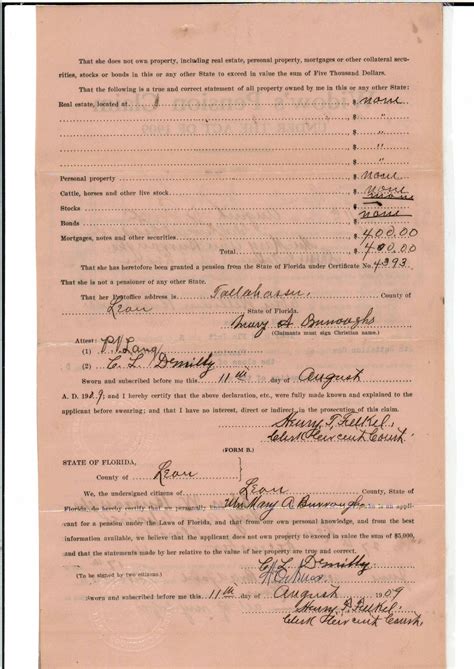 That she does not own property, including real estate, personal property, mortgages or other collateral secu-
rities, stocks or bonds in this or any other State to exceed in value the sum of Five Thousand Dollars.
That the following is a true and correct statement of all property owned by me in this or any other State:
Real estate, located at $ none
$ "
$ "
$ "
$ "
Personal property $ none
Cattle, horses and other live stock $ none
Stocks $ none
Bonds $ none
Mortgages, notes and other securities $ 400.00
Total $ 400.00
That she has heretofore been granted a pension from the State of Florida under Certificate No. 4393.
That she is not a pensioner of any other State.
That her Postoffice address is Tallahassee, County of
Leon State of Florida.
Mary A Burroughs
(Claimants must sign Christian name.)
Attest:
(1) P. V. Lang
(2) C. L. Demilly
Sworn and subscribed before me this 11th day of August
A. D. 1909, and I hereby certify that the above declaration, etc., were fully made known and explained to the
applicant before swearing; and that I have no interest, direct or indirect in the prosecution of this claim.
Henry T. Felkel.
Clerk Circuit Court.
(FORM B.)
STATE OF FLORIDA,
County of Leon
We, the undersigned citizens of Leon County, State of
Florida, do hereby certify that we personally Mrs Mary A. Burroughs is an appli-
cant for a pension under the Laws of Florida, and that from our own personal knowledge, and from the best
information available, we believe that the applicant does not own property to exceed in value the sum of $5,000,
and that the statements made by her relative to the value of her property are true and correct.
C L Demilly
(To be signed by two citizens.)
Sworn and subscribed before me this 11th day of August 1909
Henry T. Felkel
Clerk Circuit Court